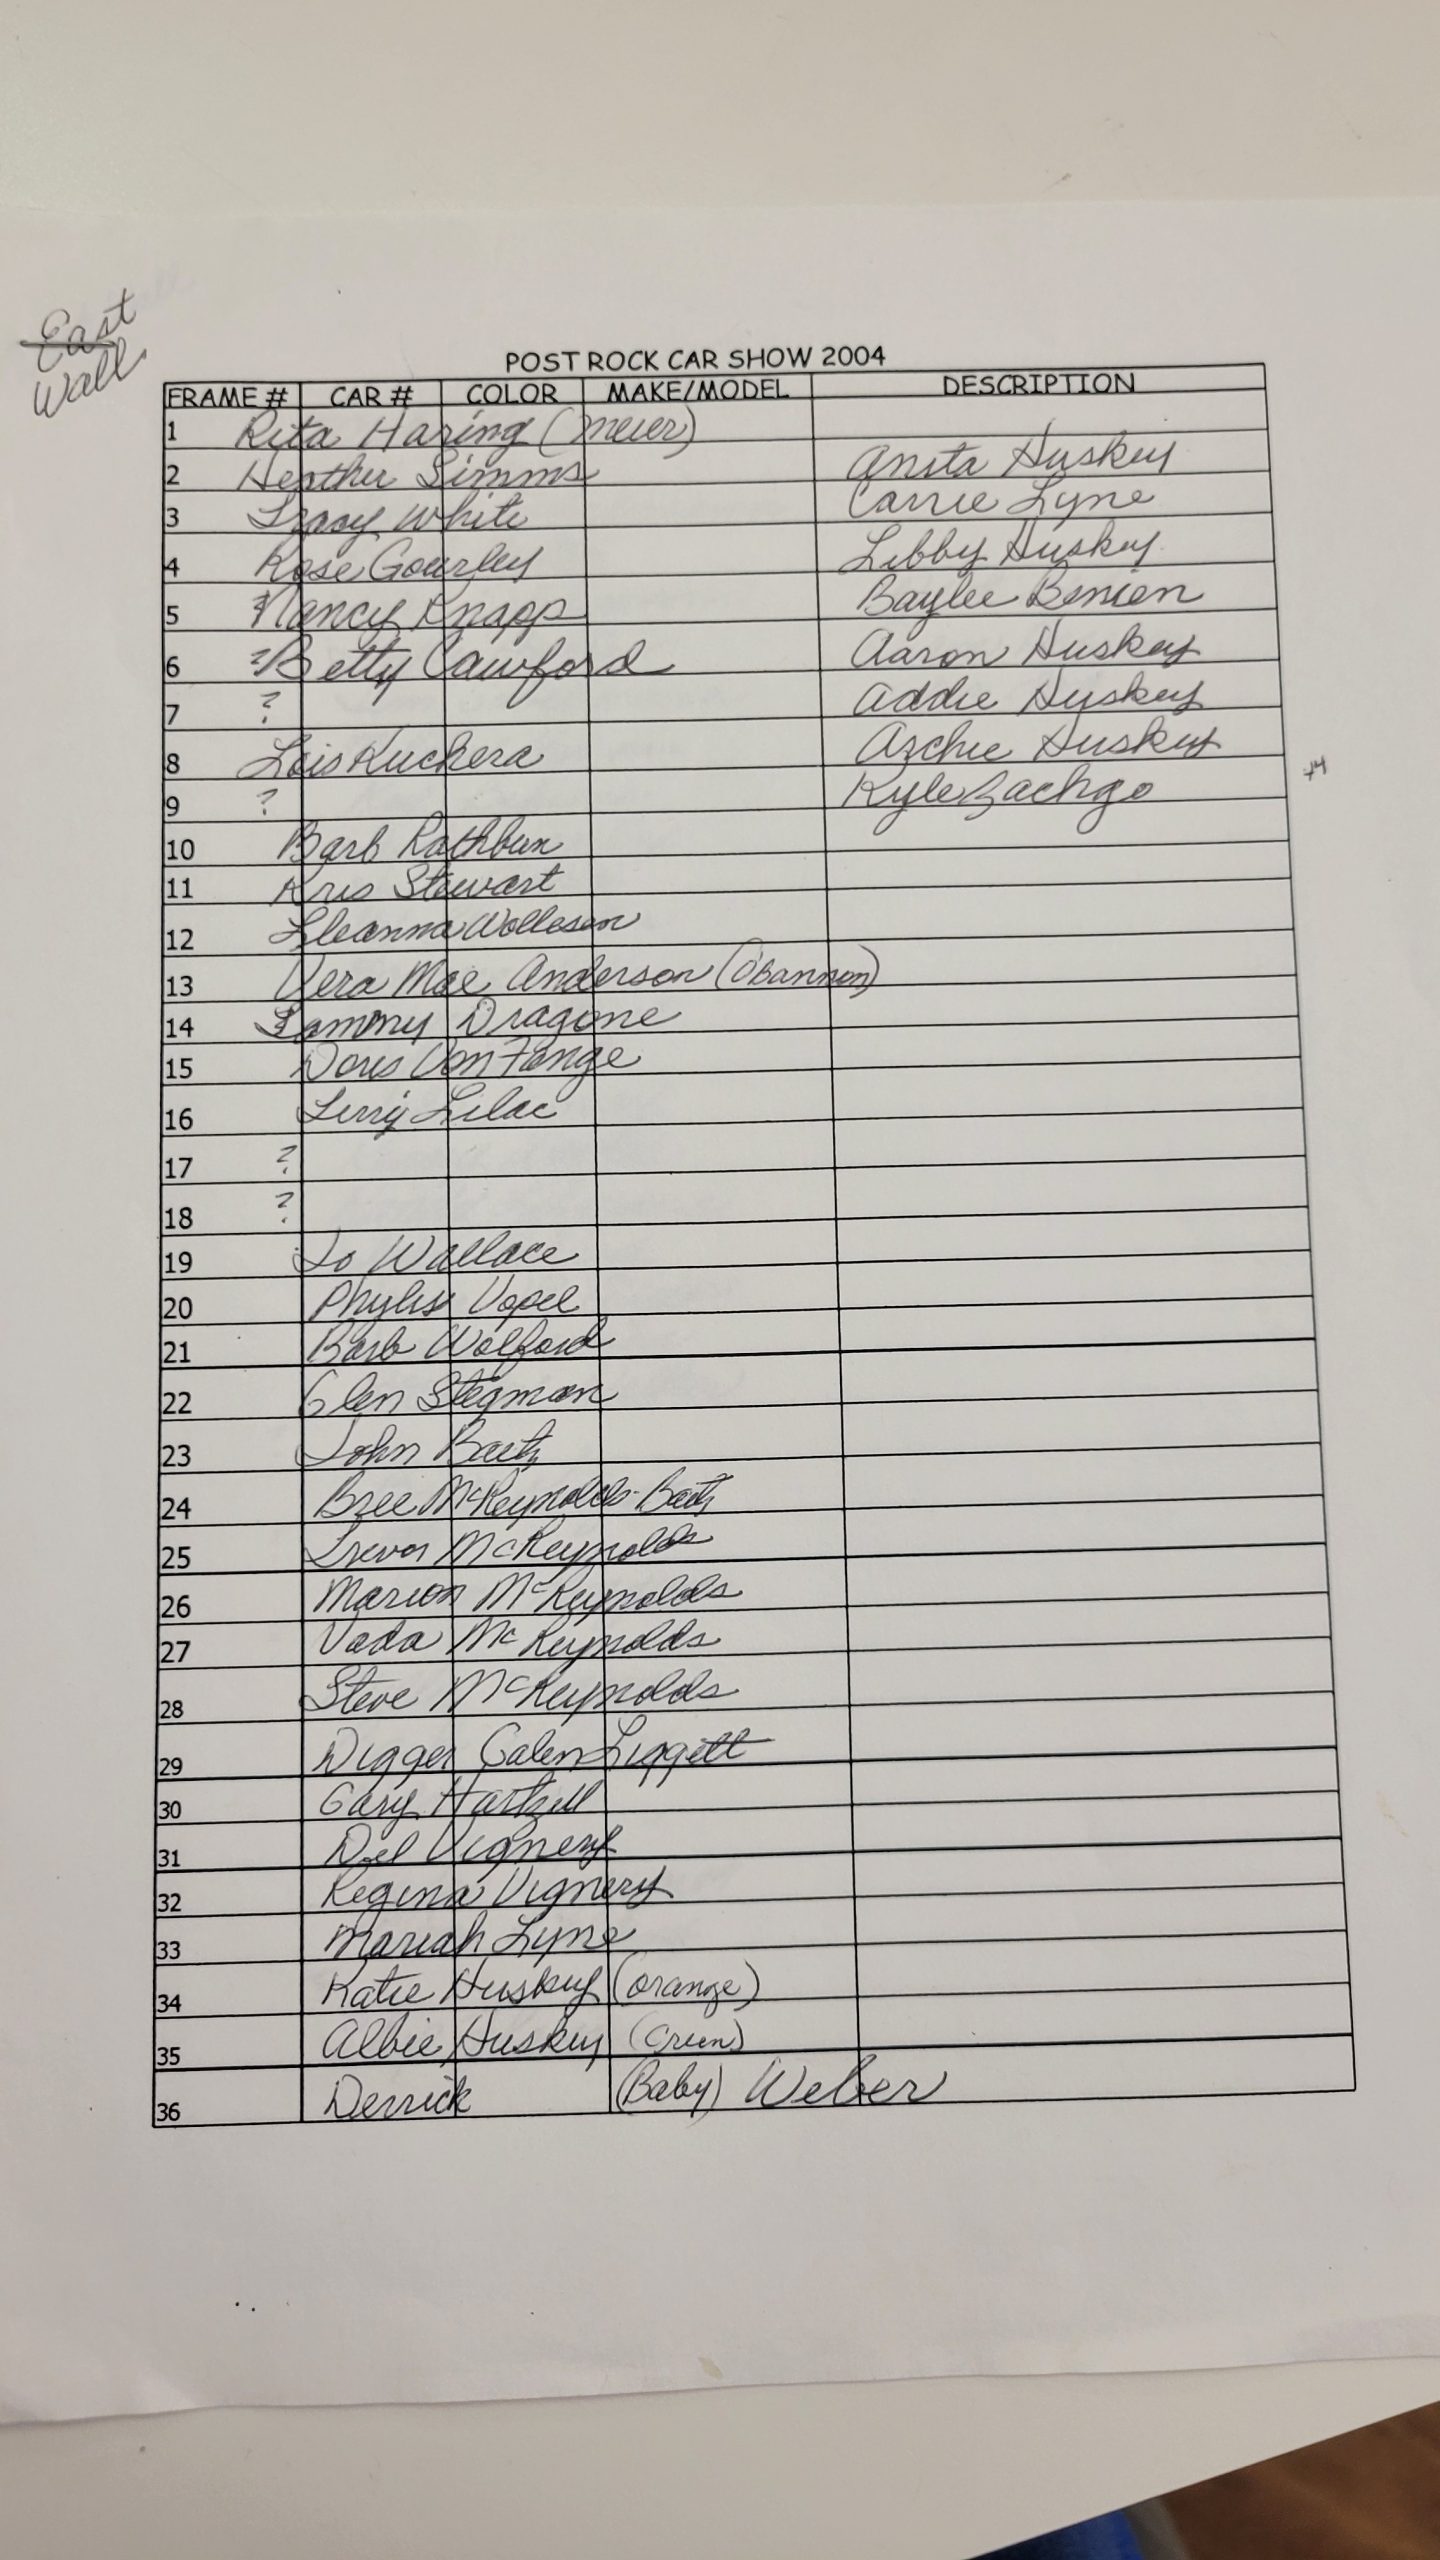 East
Wall
POST ROCK CAR SHOW 2004
FRAME # CAR # COLOR MAKE/MODEL DESCRIPTION
1 Rita Haring (Meier)
2 Heather Simms Anita Huskey
3 Tracy White Carrie Lyne
4 Rose Gourley Libby Huskey
5 ? Nancy Knapp Baylee Benien
6 ? Betty Cawford Aaron Huskey
7 ? Addie Huskey
8 Lois Kuchera Archie Huskey
9 ? Kyle Zachgo
10 Barb Rathbun
11 Kris Stewart
12 Lleanna Wollesen
13 Vera Mae Anderson (O'Bannon)
14 Tammy Dragone
15 Doris Von Fange
16 Terry Lilac
17 ?
18 ?
19 Jo Wallace
20 Phyliss Vopel
21 Barb Wolford
22 Glen Stegman
23 John Baetz
24 Bree McReynolds-Baetz
25 Trevor McReynolds
26 Marion McReynolds
27 Vada McReynolds
28 Steve McReynolds
29 Digger Galen Liggett
30 Gary Hartzell
31 Del Vignery
32 Regina Vignery
33 Mariah Lyne
34 Katie Huskey (orange)
35 Albie Huskey (Green)
36 Derrick (Baby) Weber